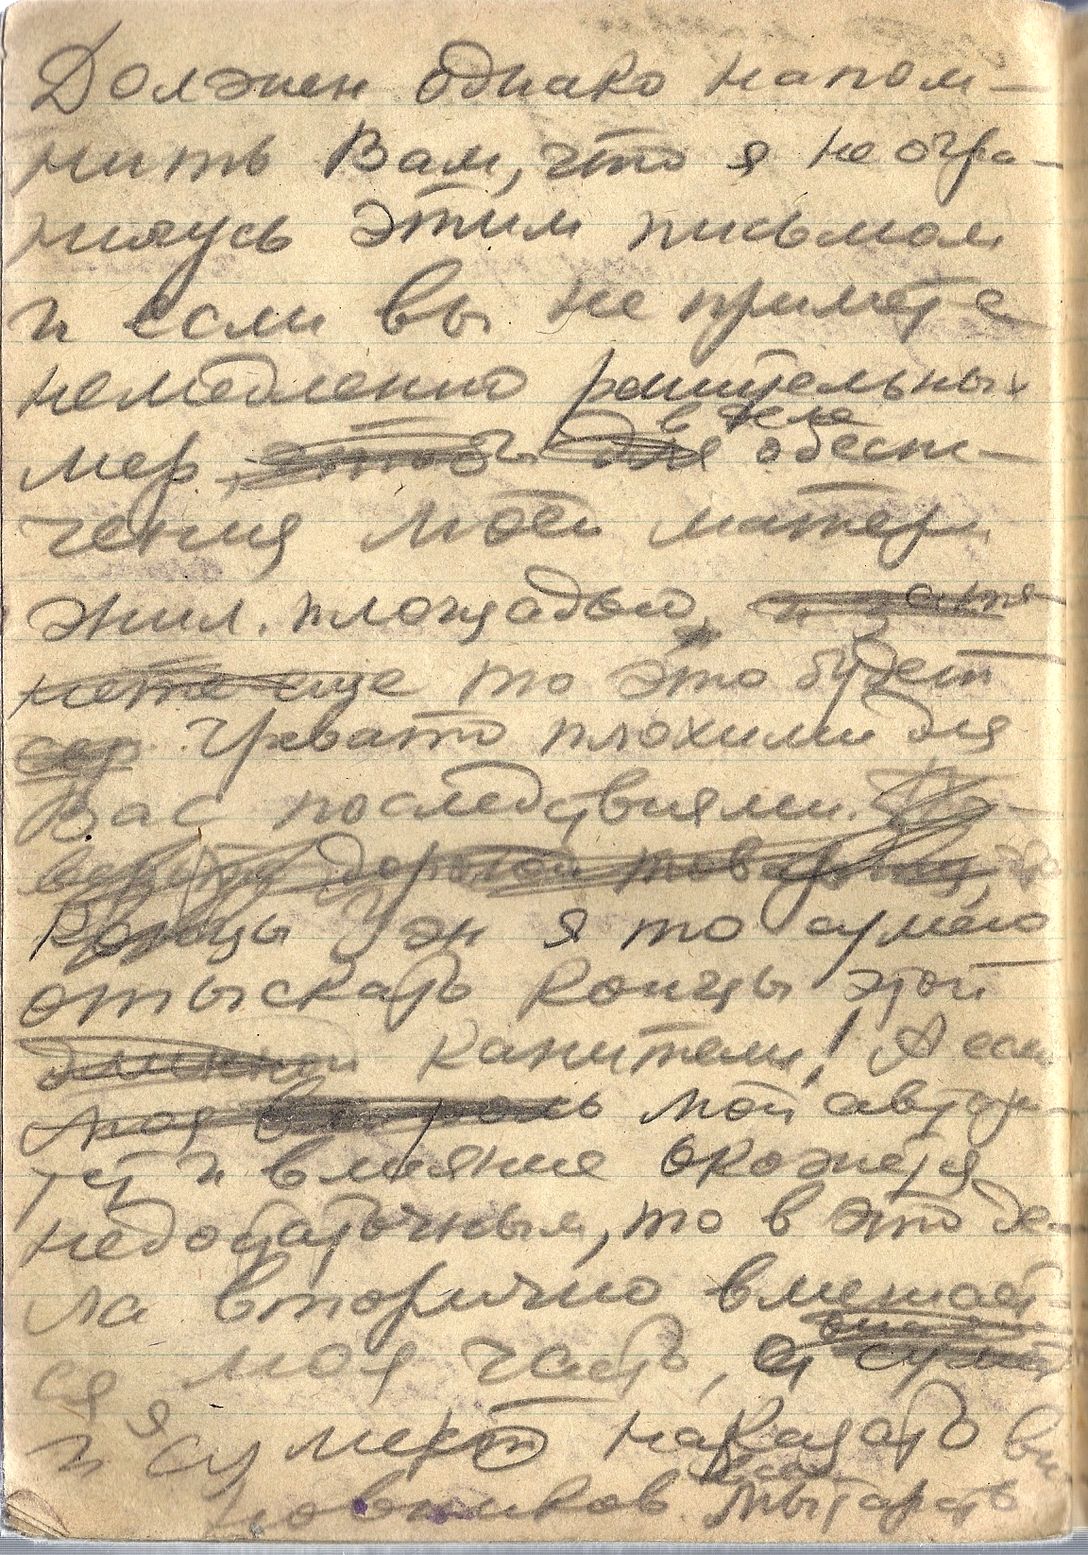 Должен однако напом-
нить Вам, что я не огра-
ничусь этим письмом
и если вы не примете
немедленно решительных
в деле
мер, чтоб для обеспе-
чения моей матери
жил. площадью,
еще то это будет
сер. Чревато плохими для
Вас последствиями.
дорогой товарищ,
Концы уж я то сумею
отыскать концы этой
длинной канители! А если
моя мой автори-
тет и влияние окажется
недостаточным, то в это де-
ла вторично вмешает-
ся моя часть, а сумеет
и я сумеет наказать ви-
новников мытарств